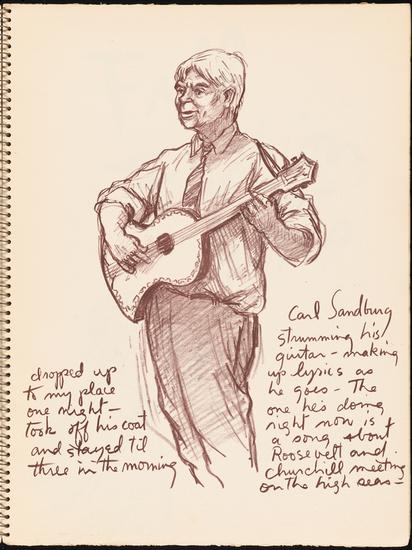 Carl Sandburg
strumming his
guitar - making
up lyrics as
he goes - The
one he's doing
right now is
a song about
Roosevelt and
Churchill meeting
on the high seas -
dropped up
to my place
one night -
took off his coat
and stayed til
three in the morning